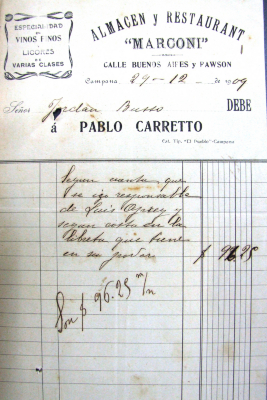 ESPECIALIDAD
EN
VINOS FINOS
Y
LICORES
DE
VARIAS CLASES
ALMACEN y RESTAURANT
"MARCONI"
CALLE BUENOS AIRES y PAWSON
Campana, 29-12- de 1909
Señor Jordán Busso DEBE
á PABLO CARRETTO
Est. Tip. "El Pueblo"-Campana
Segun cuenta que
se izo responsable
de Luis y
segun costa en la
libreta que tiene
en su poder $ 96.25
Son $ 96.25 m/n